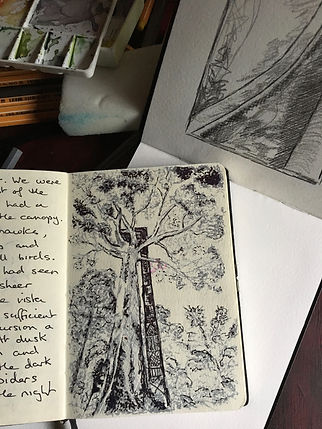 . We were
t of the
had a
the canopy.
hawks,
s and
ll birds.
had seen
sheer
e vista
sufficient
ursion a
t dusk
n and
the dark
piders
e night